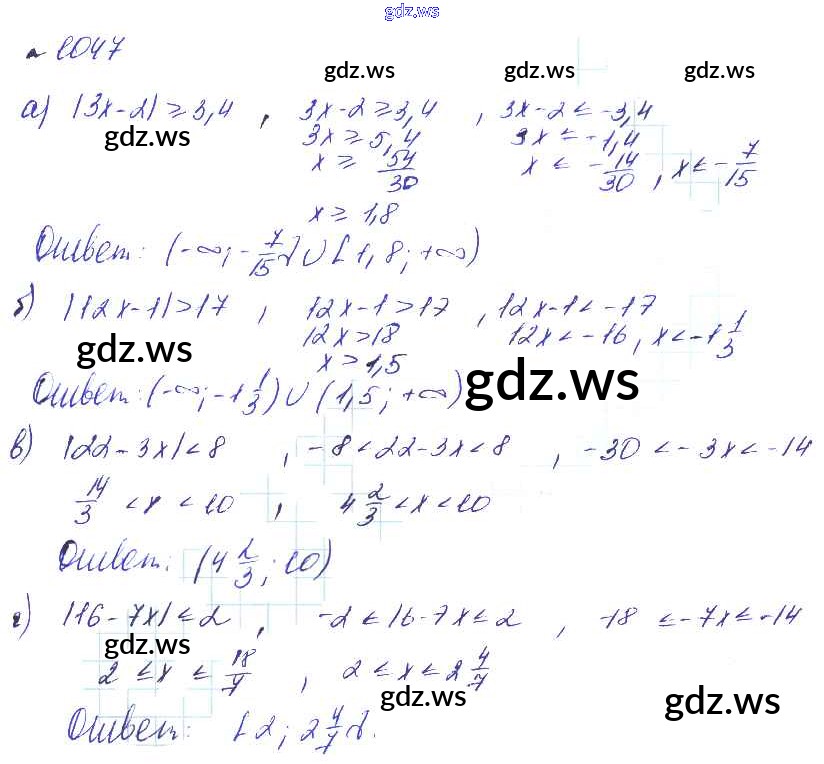 gdz.ws
№ 1047
gdz.ws gdz.ws gdz.ws
а) |3x-2| ≥ 3,4 , 3x-2 ≥ 3,4 , 3x-2 ≤ -3,4
gdz.ws 3x ≥ 5,4 3x ≤ -1,4
x ≥ 54/30 x ≤ -14/30 , x ≤ -7/15
x ≥ 1,8
Ответ: (-∞; -7/15] ∪ [1,8; +∞)
б) |12x-1| > 17 , 12x-1 > 17 , 12x-1 < -17
gdz.ws 12x > 18 12x < -16, x < -1 1/3
x > 1,5
Ответ: (-∞; -1 1/3) ∪ (1,5; +∞) gdz.ws
в) |22-3x| < 8 , -8 < 22-3x < 8 , -30 < -3x < -14
14/3 < x < 10 , 4 2/3 < x < 10
Ответ: (4 2/3; 10)
г) |16-7x| ≤ 2 , -2 ≤ 16-7x ≤ 2 , -18 ≤ -7x ≤ -14
gdz.ws
2 ≤ x ≤ 18/7 , 2 ≤ x ≤ 2 4/7
gdz.ws gdz.ws
Ответ: [2; 2 4/7].
gdz.ws